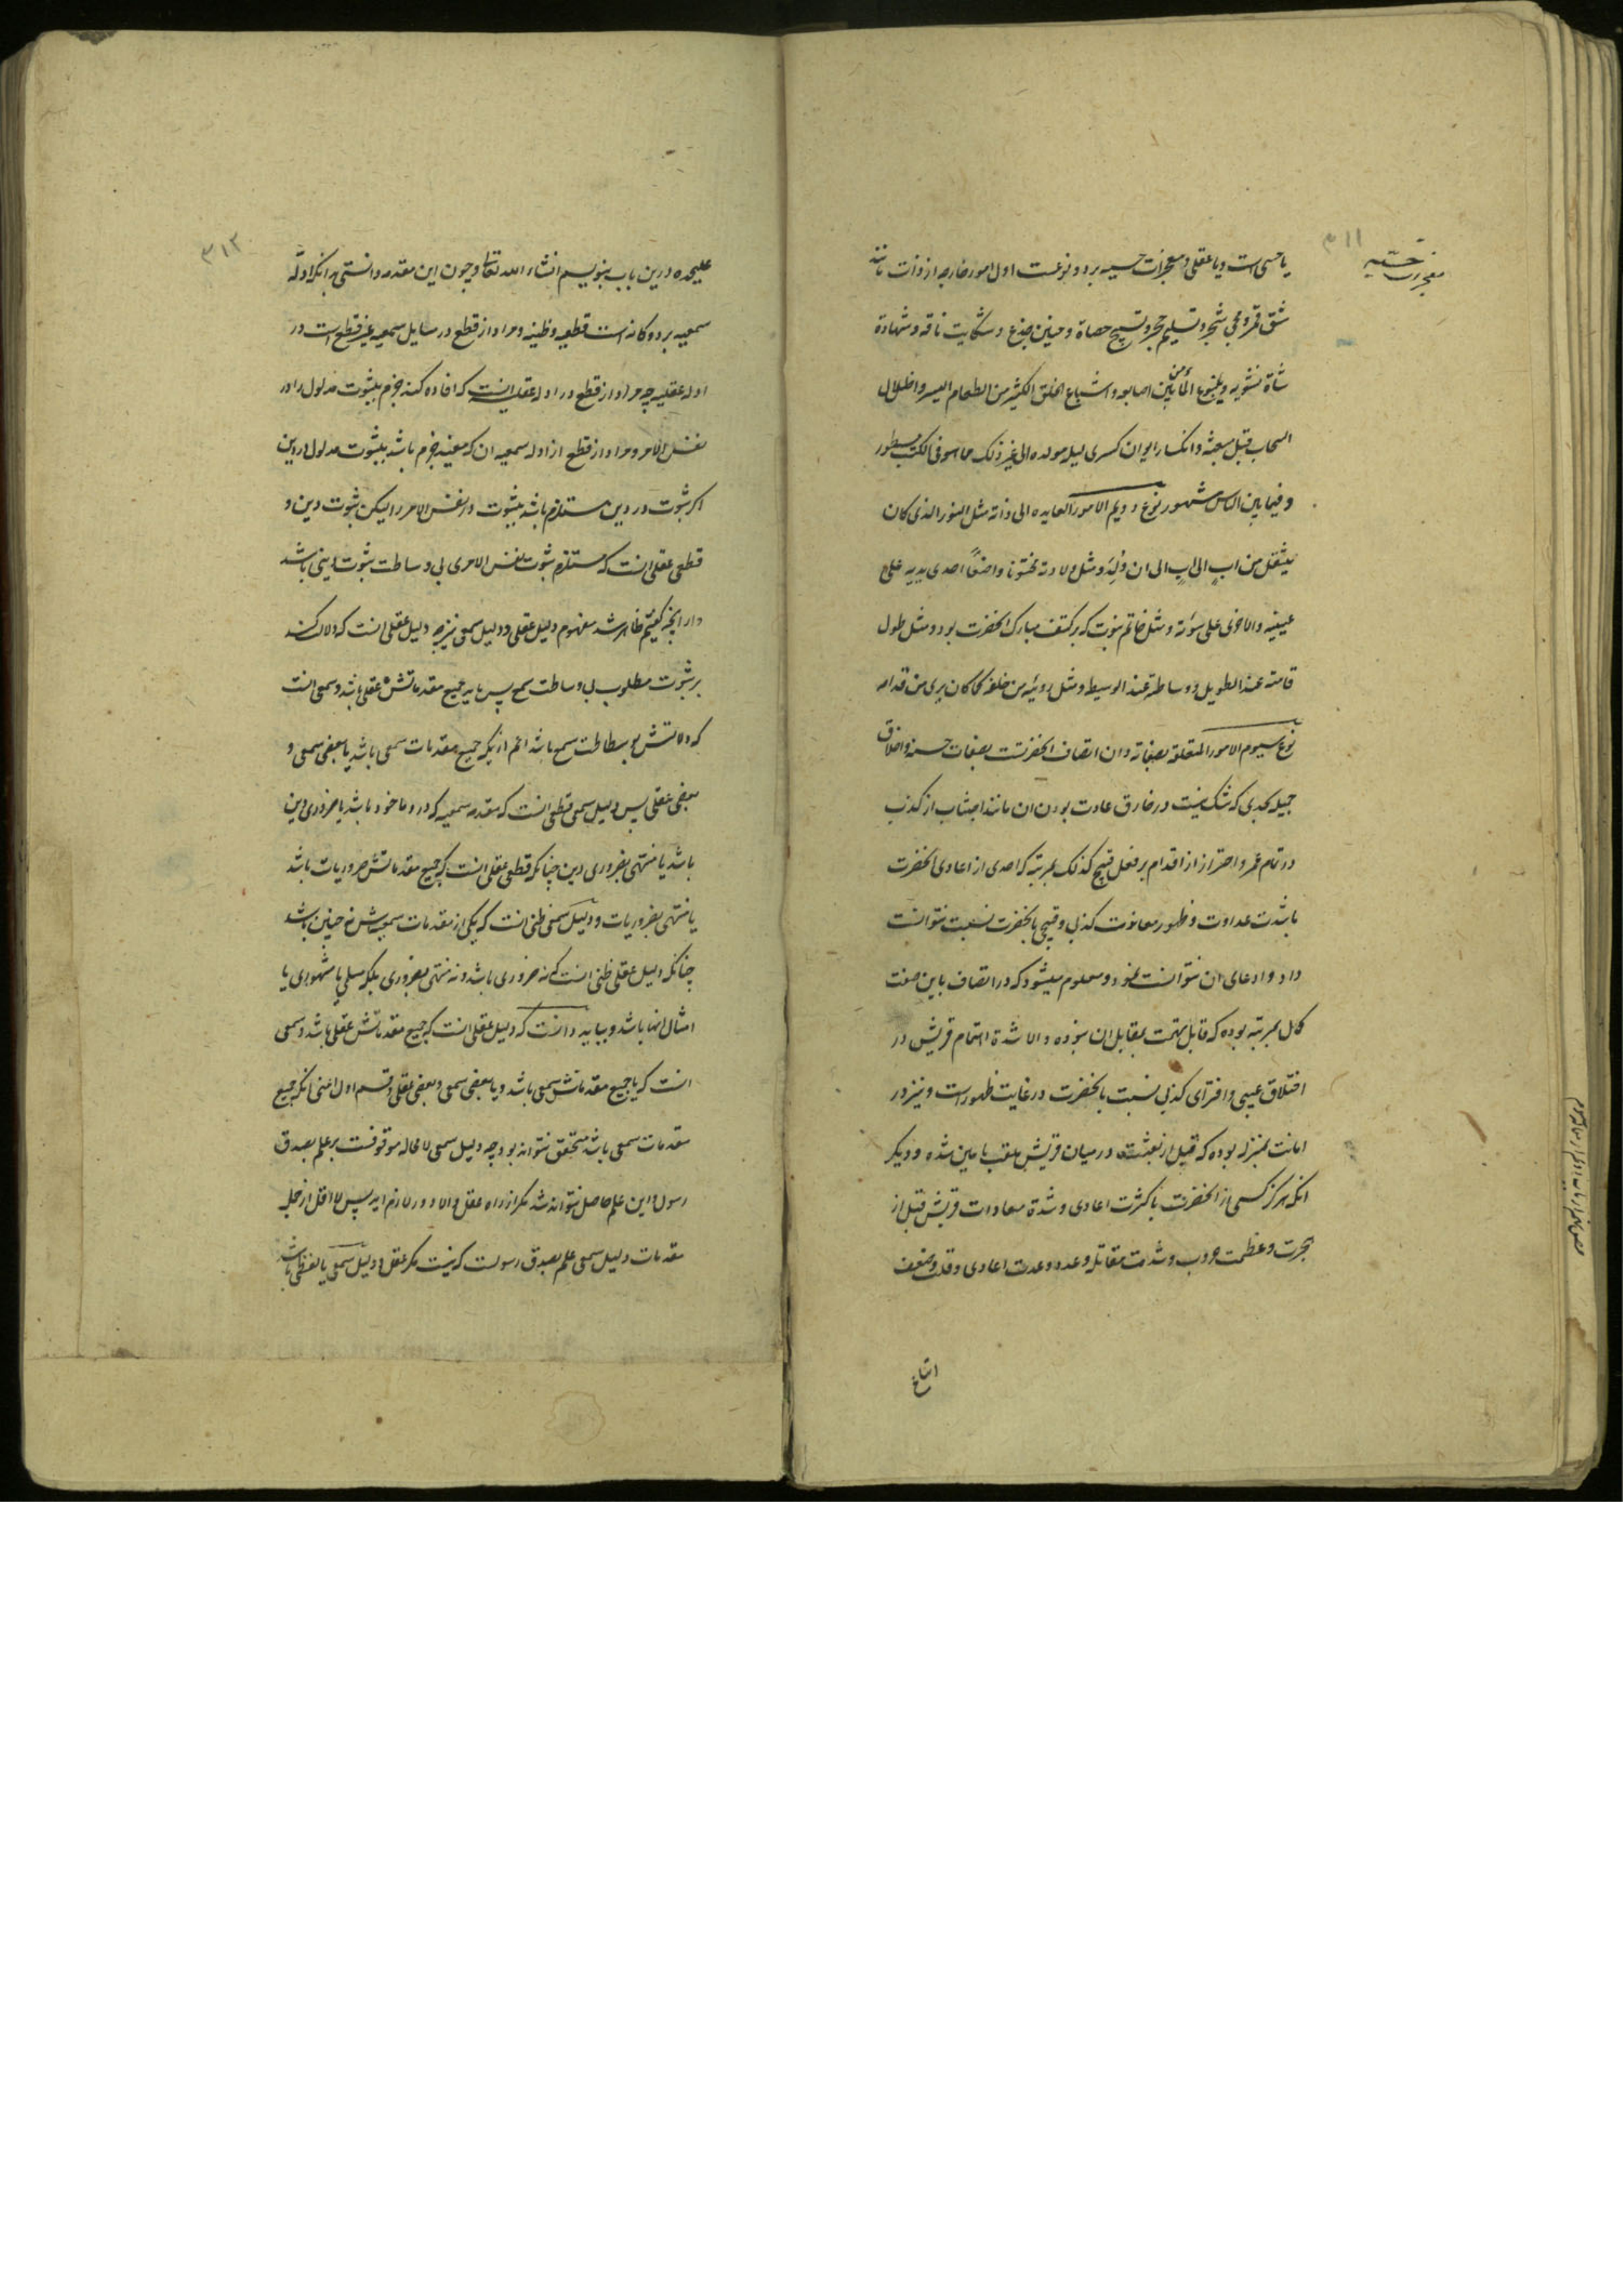 ۳۱۱
معجزات حسّیه
یا حسی است و یا عقلی و معجزات حسیه بر دو نوعست اول امور خارجه از ذات مانند
شق قمر و مجی شجر و تسلیم حجر و تسبیح حصاة و حنین جذع و شکایت ناقه و شهادة
شاة مشویه و ینبوع الماء من بین اصابعه و اشباع الخلق الکثیر من الطعام الیسیر و اظلال
السحاب قبل مبعثه و انکسار ایوان کسری لیله مولده الی غیر ذلک مما هو فی الکتب مسطور
و فیما بین الناس مشهور نوع دویم الامور العایده الی ذاته مثل النور الذی کان
ینتقل من ابٍ الی ابٍ الی ان ولد و مثل ولادته مختونا واضعاً احدی یدیه علی
عینیه و الاخری علی سوءته و مثل خاتم نبوت که بر کتف مبارک انحضرت بود و مثل طول
قامته عند الطویل و وساطته عند الوسیط و مثل رویته من خلفه کما کان یری من قدامه
نوع سیوم الامور المتعلقه بصفاته و ان اتصاف انحضرتست بصفات حسنه و اخلاق
جمیله بحدی که شک نیست در خارق عادت بودن ان مانند اجتناب از کذب
در تمام عمر و احتراز از اقدام بر فعل قبیح کذلک بمرتبه که احدی از اعادی انحضرت
با شدت عداوت و ظهور معاندت کذبی و قبیحی بانحضرت نسبت نتوانست
داد و ادعای ان نتوانست نمود و معلوم میشود که در اتصاف باین صفت
کمال بمرتبه بوده که قابل تهمت بمقابل ان نبوده و الا شدة اهتمام قریش در
اختلاق عیبی و افترای کذبی نسبت بانحضرت در غایت ظهور است و نیز در
امانت بمنزله بوده که قبل از بعثت در میان قریش ملقب بامین شده و دیگر
انکه هرگز کسی از انحضرت با کثرت اعادی و شدة معادات قریش قبل از
هجرت و عظمت حروب و شدت مقاتله و عدد و عدت اعادی و قلت و ضعف
۳۱۲
علیحده درین باب بنویسم انشاء الله تعالی و چون این مقدمه دانستی بدانکه ادله
سمعیه بر دو گانه است قطعیه و ظنیه و مراد از قطع در مسایل سمعیه غیر قطع است در
ادله عقلیه چه مراد از قطع در ادله عقلیه انست که افاده کند جزم بثبوت مدلول را در
نفس الامر و مراد از قطع از ادله سمعیه ان که مفید جزم باشد بثبوت مدلول در دین
اگر ثبوت در دین مستلزم باشد بثبوت در نفس الامر را لیکن ثبوت دین و
قطعی عقلی انست که مستلزم ثبوت نفس الامری بی وساطت ثبوت دینی باشد
و از انچه گفتیم ظاهر شد مفهوم دلیل عقلی و دلیل سمعی نیز چه دلیل عقلی انست که دلالت کند
بر ثبوت مطلوب بی وساطت سمع پس باید جمیع مقدماتش عقلی باشد و سمعی انست
که دلالتش بوساطت سمع باشد اعم از انکه جمیع مقدمات سمعی باشد یا بعضی سمعی و
بعضی عقلی پس دلیل سمعی قطعی انست که مقدمه سمعیه که در او ماخوذ باشد یا ضروری دین
باشد یا منتهی بضروری دین چنانکه قطعی عقلی انست که جمیع مقدماتش ضروریات باشد
یا منتهی بضروریات و دلیل سمعی ظنی انست که یکی از مقدمات سمعیه‌اش نه چنین باشد
چنانکه دلیل عقلی ظنی انست که نه ضروری باشد و نه منتهی بضروری بلکه مسلمی یا مشهوری یا
امثال انها باشد و بباید دانست که دلیل عقلی انست که جمیع مقدماتش عقلی باشد و سمعی
انست که یا جمیع مقدماتش سمعی باشد و یا بعضی سمعی و بعضی عقلی و قسم اول اعنی انکه جمیع
مقدمات سمعی باشد متحقق نتواند بود چه دلیل سمعی لا محاله موقوفست بر علم بصدق
رسول و این علم حاصل نتواند شد مگر از راه عقل والا دور لازم اید پس لا اقل از جمله
مقدمات دلیل سمعی علم بصدق رسولست که نیست مگر عقلی و دلیل سمعی یا لفظی باشد